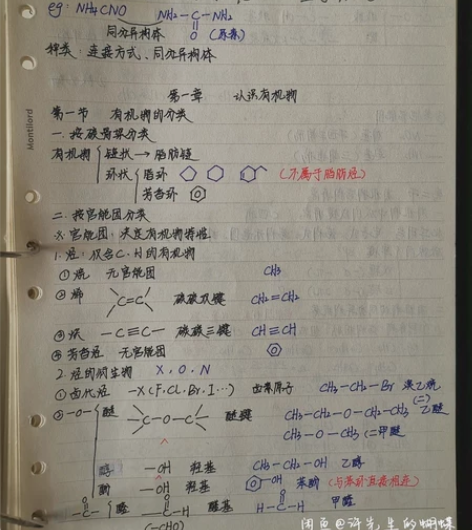 eg: NH4CNO NH2-C-NH2
同分异构体 O (尿素)
种类: 连接方式、同分异构体
Montilord
第一章 认识有机物
第一节 有机物的分类
一. 按碳骨架分类
有机物 链状 → 脂肪链
环状 脂环 (不属于脂肪烃)
芳香环
二. 按官能团分类
※ 官能团: 决定有机物特性
1. 烃: 仅含C、H的有机物
① 烷 无官能团 CH3
② 烯 C=C 碳碳双键 CH2=CH2
③ 炔 -C≡C- 碳碳三键 CH≡CH
④ 芳香烃 无官能团
2. 烃的衍生物 X、O、N
① 卤代烃 -X(F、Cl、Br、I…) 卤素原子 CH3-CH2-Br 溴乙烷
② -O- 醚 -C-O-C- 醚键 CH3-CH2-O-CH2-CH3 (二)乙醚
CH3-O-CH3 (二甲醚
醇 -OH 羟基 CH3-CH2-OH 乙醇
酚 -OH 羟基 -OH 苯酚 (与苯环直接相连)
-C- 醛 -C-H 醛基 H-C-H 甲醛
(-CHO)
闲鱼@许先生的蝴蝶